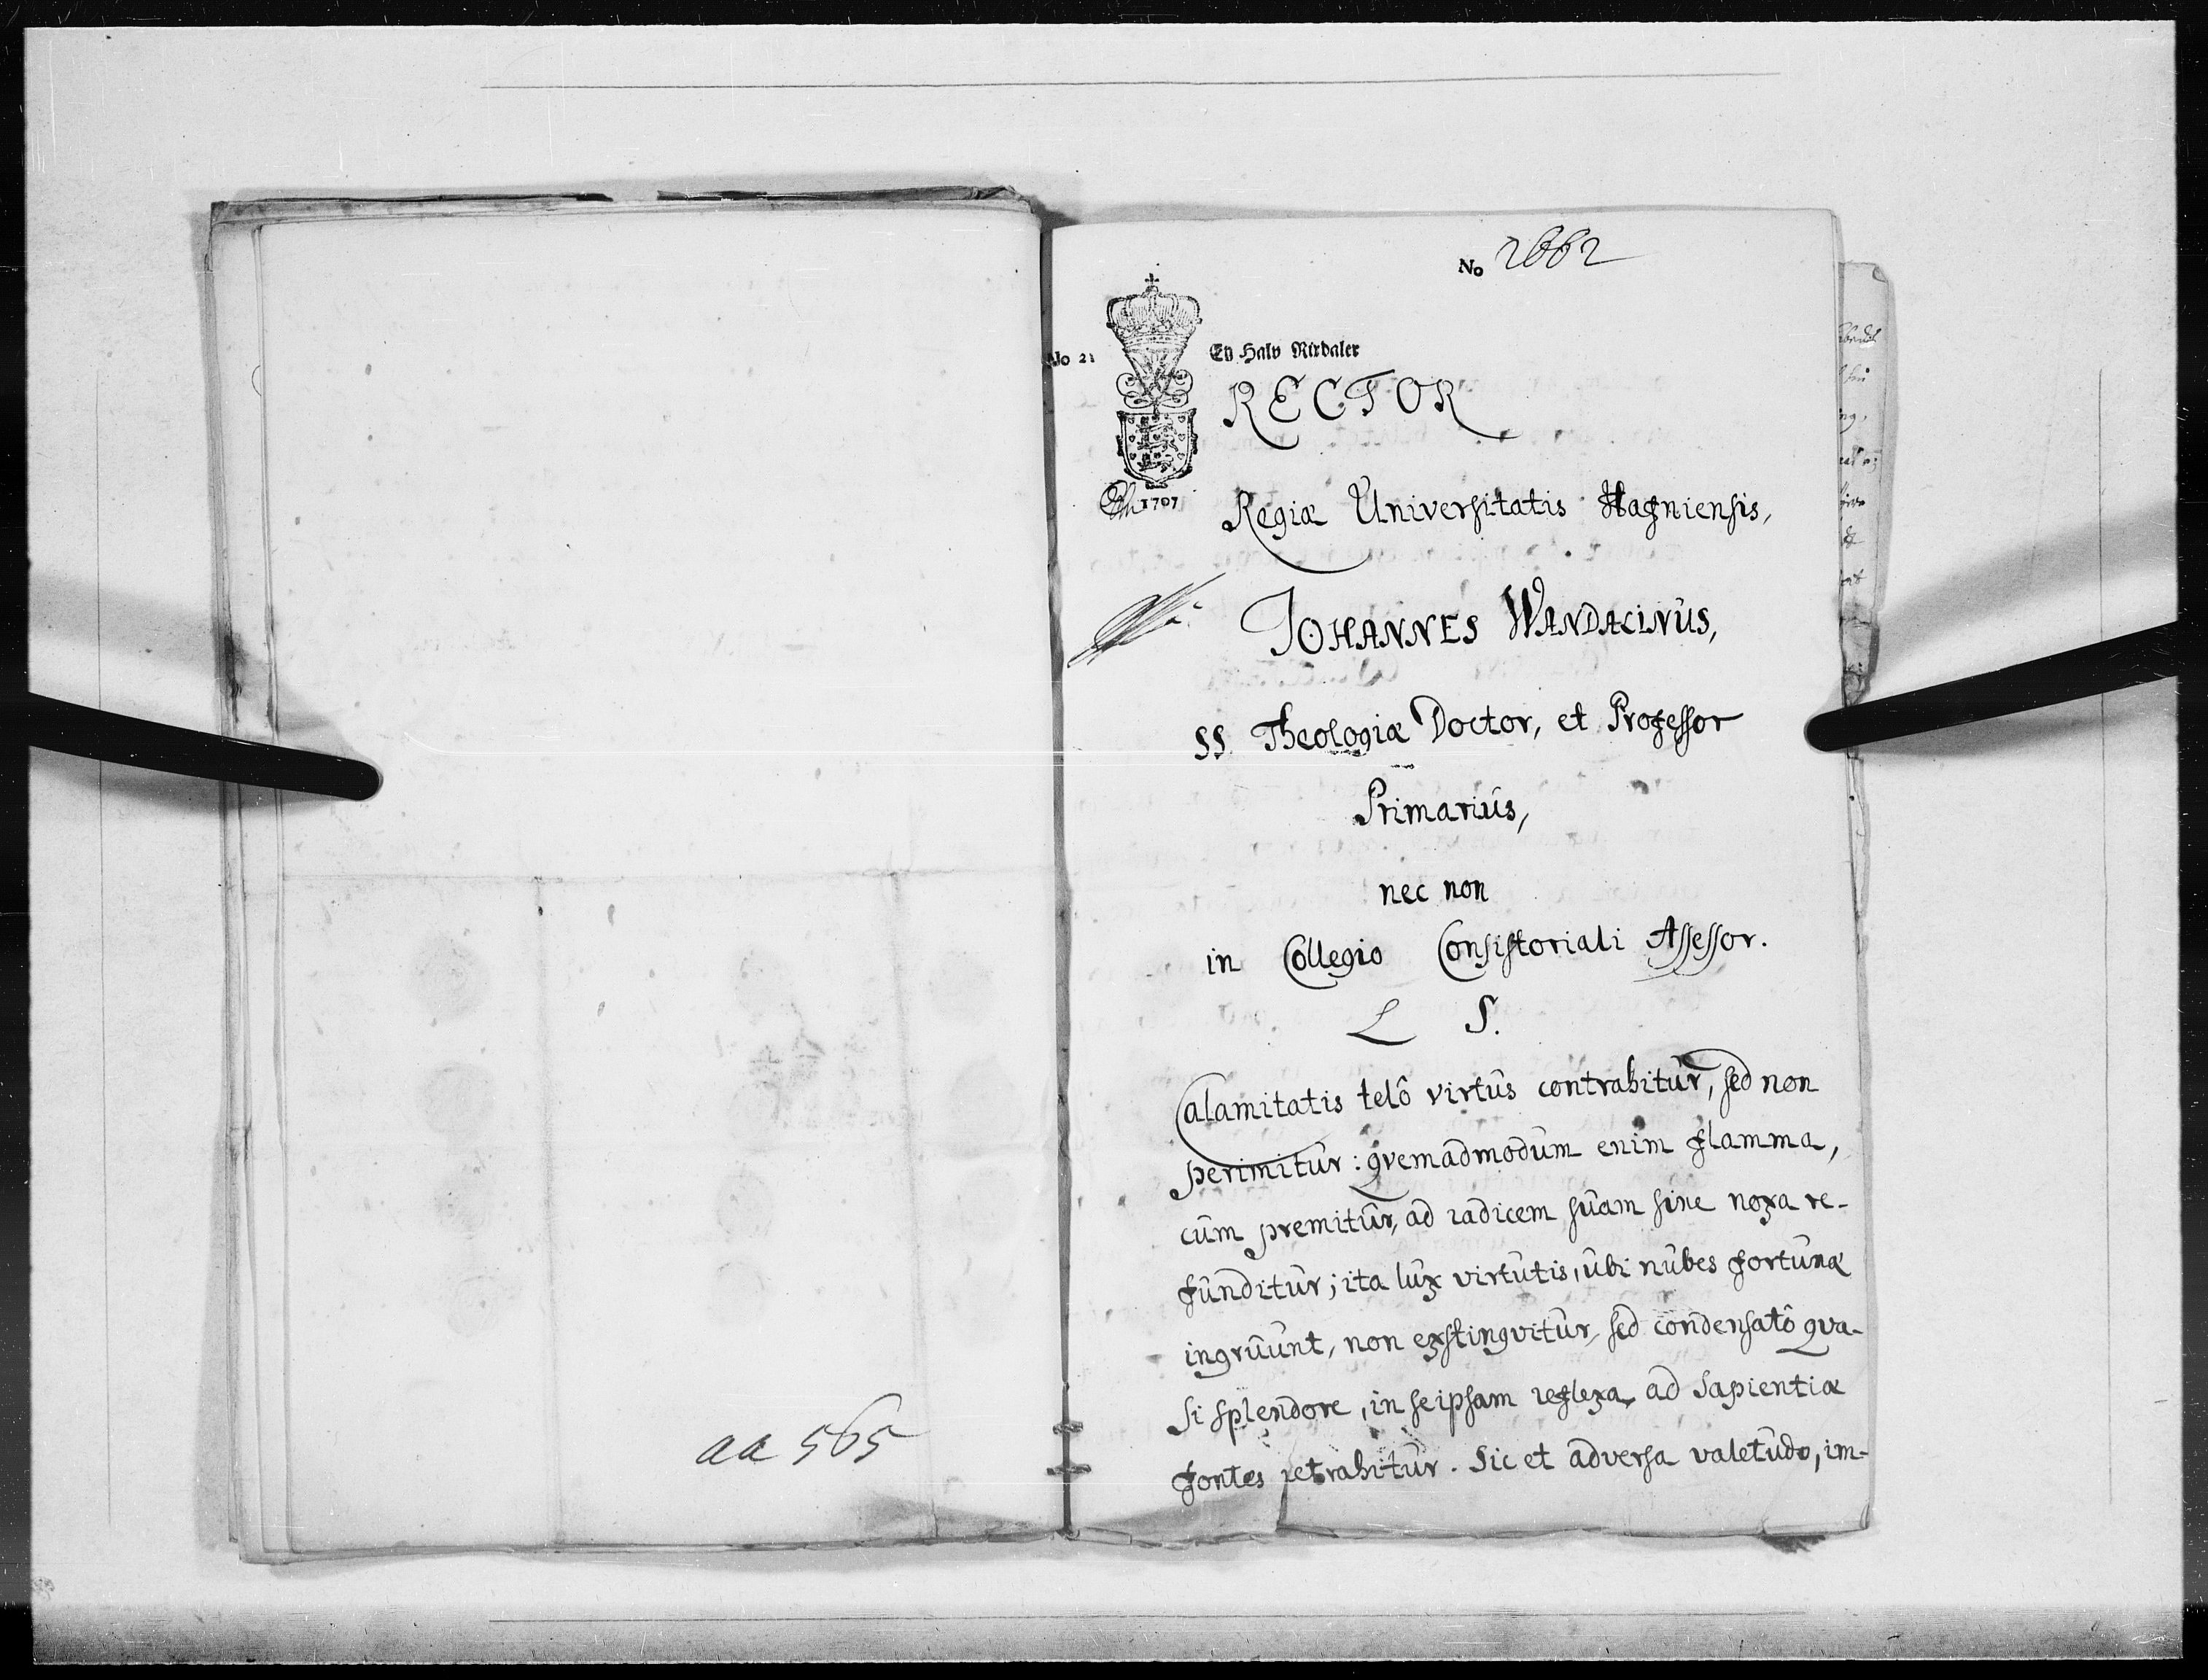 aa 565
No 2662
No 21
En Halv Rixdaler
RECTOR
1707
Regiæ Universitatis Hafniensis,
JOHANNES WANDALINUS,
SS. Theologiæ Doctor, et Professor
Primariûs,
nec non
in Collegio Consistoriali Assessor.
L S.
Calamitatis telô virtûs contrahitûr, sed non
perimitûr: qvemadmodûm enim flamma,
cûm premitûr, ad radicem sûam sine noxa re-
fûnditûr; ita lûx virtûtis, ûbi nûbes fortûnæ
ingrûûnt, non exstingvitûr, sed condensatô qva-
si splendore, in seipsam reflexa, ad sapientiæ
fontes retrahitûr. Sic et adversa valetûdo, im-